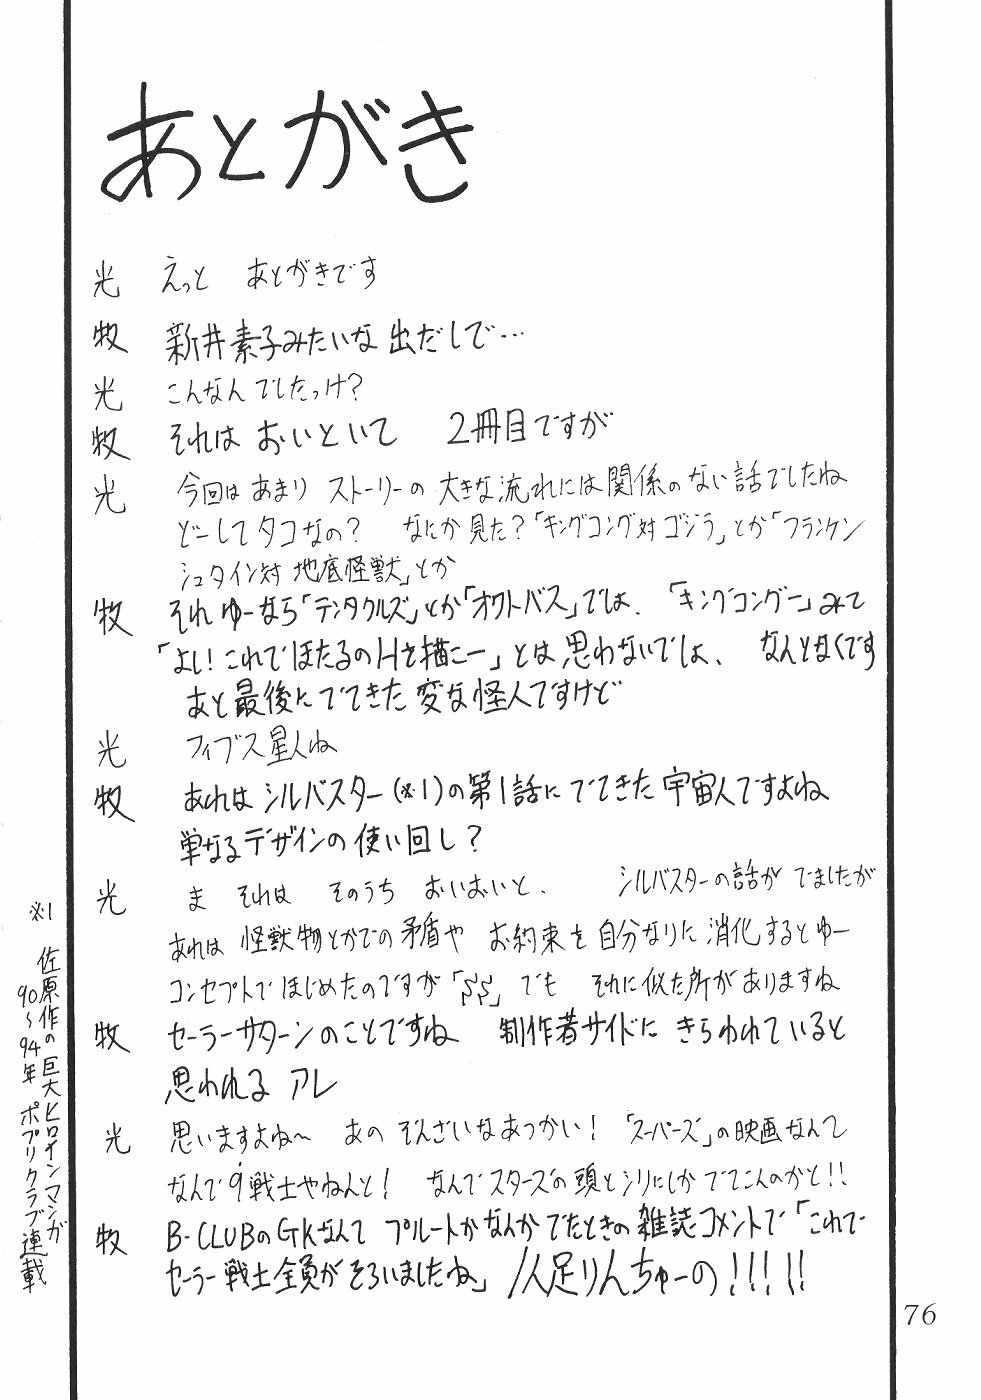 あとがき
光 えっと あとがきです
牧 新井素子みたいな出だしで…
光 こんなんでしたっけ?
牧 それは おいといて 2冊目ですが
光 今回は あまり ストーリーの 大きな流れには関係のない話でしたね
どーしてタコなの? なにか見た?「キングコング対ゴジラ」とか「フランケン
シュタイン対 地底怪獣」とか
牧 それ ゆーなら「テンタクルズ」とか「オクトバス」でしょ、「キングコングー」みて
「よし!これでほたるのHを描こー」とは思わないでしょ、なんとなくです
あと最後にでてきた変な怪人ですけど
光 フィブス星人ね
牧 あれはシルバスター(※1)の第1話にでてきた宇宙人ですよね
単なるデザインの使い回し?
光 ま それは そのうち おいおいと、 シルバスターの話が でましたが
あれは 怪獣物とかでの矛盾や お約束を自分なりに消化するとゆー
コンセプトではじめたのですが「SS」でも それに似た所がありますね
牧 セーラーサターンのことですね 制作者サイドに きらわれていると
思われる アレ
光 思いますよね〜 あの ぞんざいなあつかい!「スーパーズ」の映画なんて
なんで9戦士やねんと! なんでスターズの頭とシリにしかでてこんのかと!!
牧 B-CLUBのGKなんて プルートかなんかでたときの雑誌コメントで「これで
セーラー戦士全員がそろいましたね」1人足りんちゅーの!!!!!
※1 佐原作の巨大ヒロインマンガ
90〜94年 ポプリクラブ連載
76